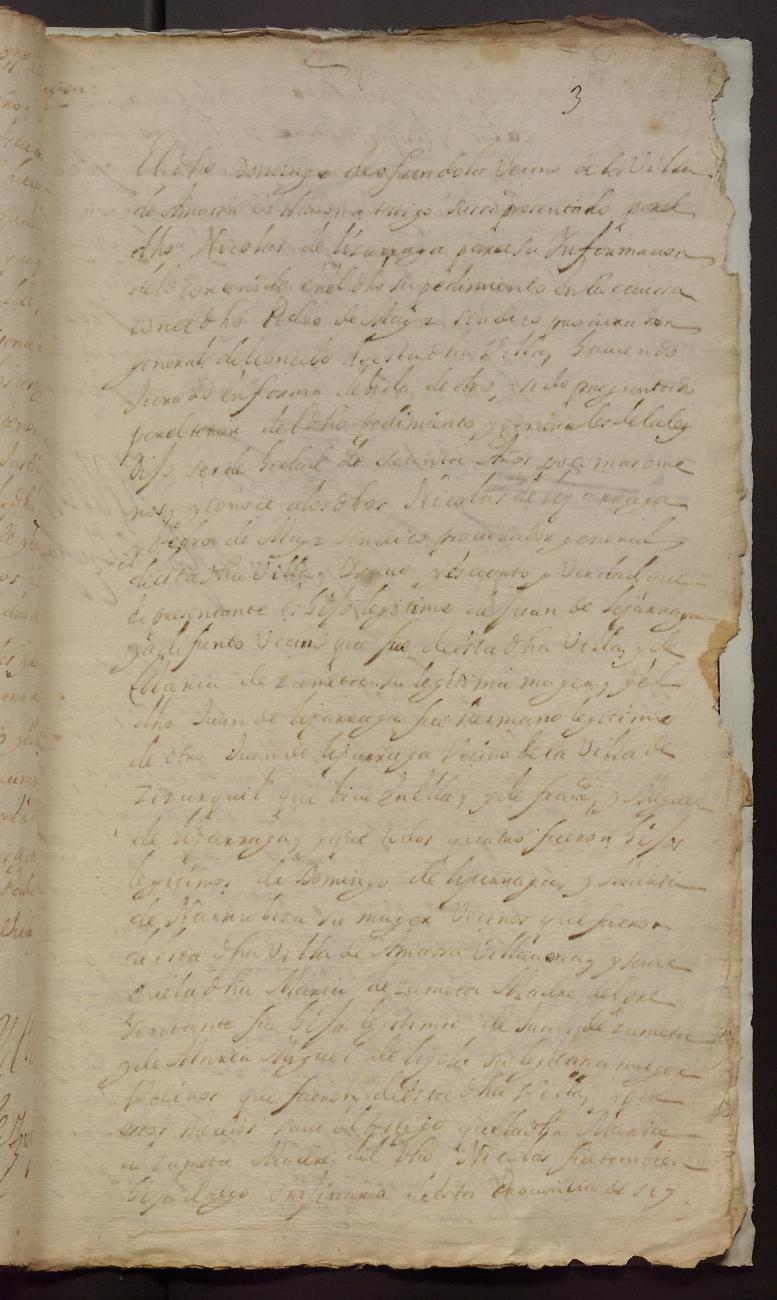 3
El dho Domingo de ofandola Vecino de la Villa
de Amassa Villauona testigo presentado por el
dho Nicolas de lizarraga para su Informacion
de lo contenido en el dho su pedimiento en la caussa
con el dho Pedro de Mayz sindico procurador
general del conceJo de esta dha Villa, hauiendo
Jurado en forma debida de dro, y sido preguntado
por el tenor del dho pedimiento y generales de la ley
Dijo ser de hedad de setenta años poco mas o me
nos, y conoce a los dhos Nicolas de lizarraga
y Pedro de Mayz sindico procurador general
de esta dha Villa, y es cierto y Verdad que
el presentante es hiJo legitimo de Juan de lizarraga
ya difunto Vecino que fue de esta dha Villa, y de
Maria de zumeta su legitima muger, y el
dho Juan de lizarraga fue hermano legitimo
de otro Juan de lizarraga Vecino de la Villa de
zizurquil que biue en ella, y de franco, y Miguel
de lizarraga, y que todos quatro fueron hiJos
legitimos de Domingo de lizarraga, y Maria
de su muger Vecinos que fueron
de esta dha Villa de Amassa Villauona, y saue
que la dha Maria de zumeta Madre del pre
sentante fue hiJa legitima de Juan de zumeta
y de Maria Miguel de su legitima muger
Vecinos que fueron de esta dha Villa, y por
estos medios saue el testigo que la dha Maria
de zumeta Madre del dho Nicolas fue tambien
hiJa dalgo originaria de esta Prouincia